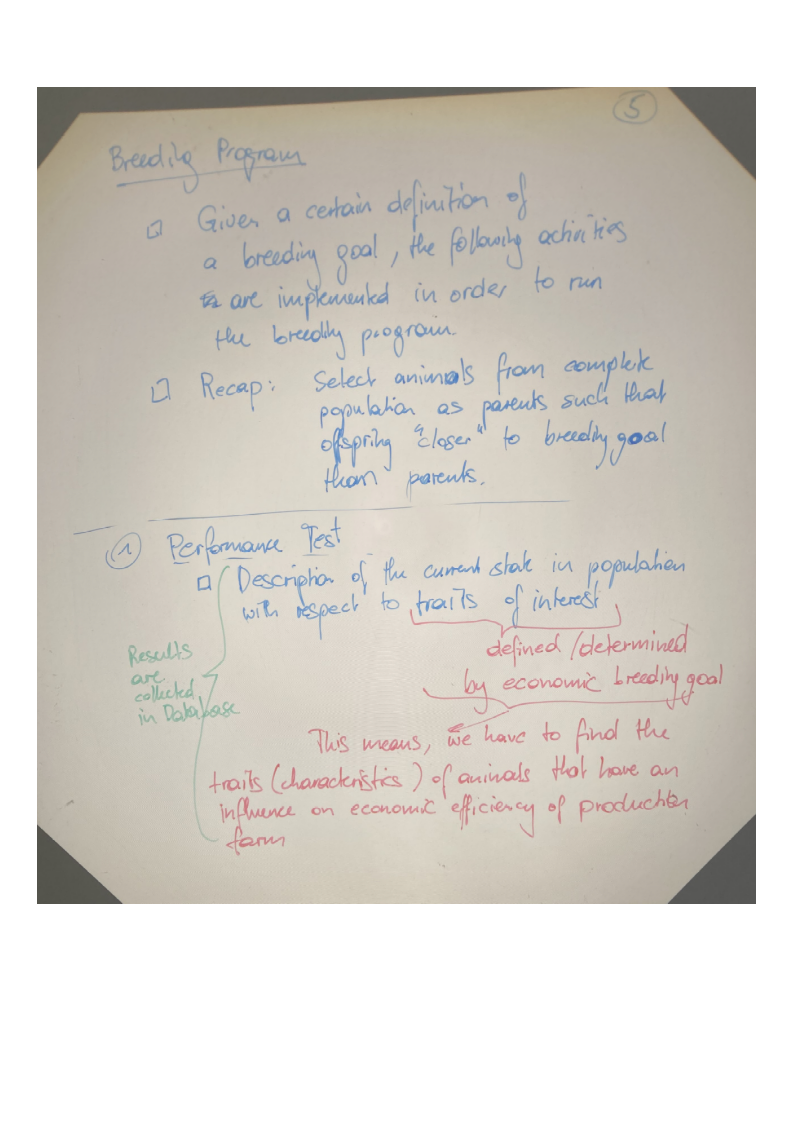 5
Breeding Program
Given a certain definition of
a breeding goal, the following activities
are implemented in order to run
the breeding program.
Recap: Select animals from complete
population as parents such that
offspring "closer" to breeding goal
than parents.
1 Performance Test
Description of the current state in population
with respect to traits of interest
defined / determined
by economic breeding goal
Results
are
collected
in Database
This means, we have to find the
traits (characteristics) of animals that have an
influence on economic efficiency of production
farm